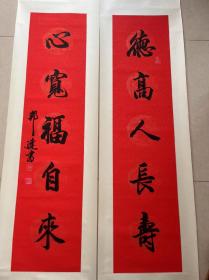 德高人長壽
心寬福自來